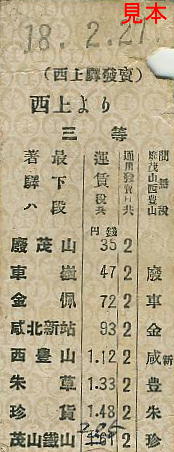 見本
18. 2. 21
(西上驛發賣)
西上より
三等
着驛ハ 最下段 運賃稅共 通用發賣日共 間驛設
廢茂山西豊山
円 錢
廢茂山 35 2
車嶺 47 2 廢
金佩 72 2 車
咸北新站 93 2 金
西豊山 1.12 2 新咸
朱草 1.33 2 豊
珍貨 1.48 2 朱
茂山鐵山 2 珍